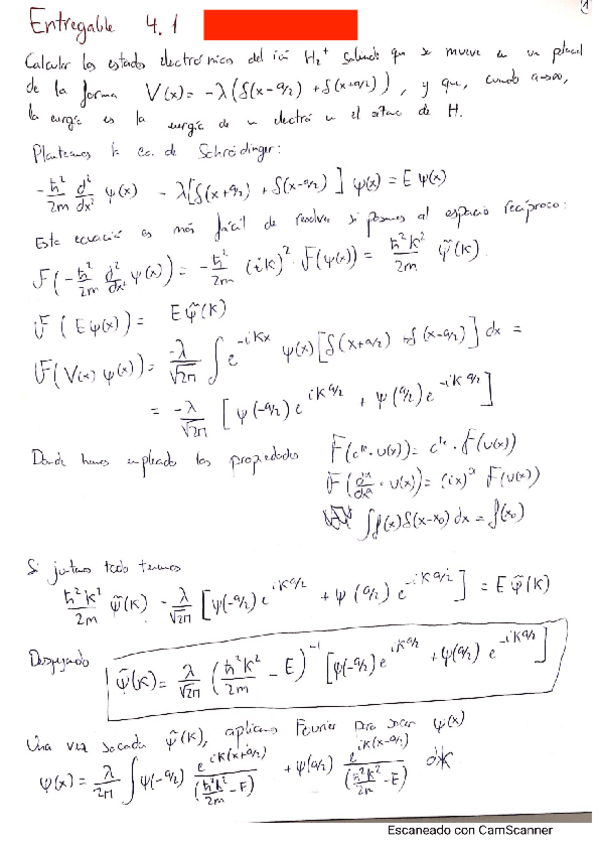 Entregable 4.1
1
Calcular los estados electrónicos del ión H₂⁺ sabiendo que se mueve en un potencial
de la forma V(x) = -λ(δ(x-a/2) + δ(x+a/2)), y que, cuando a→∞,
la energía es la energía de un electrón en el átomo de H.
Planteamos la ec. de Schrödinger:
-ħ²/2m d²/dx² ψ(x) - λ[δ(x+a/2) + δ(x-a/2)] ψ(x) = E ψ(x)
Esta ecuación es más fácil de resolver si pasamos al espacio recíproco:
F(-ħ²/2m d²/dx² ψ(x)) = -ħ²/2m (ik)² · F(ψ(x)) = ħ²k²/2m ψ̃(k)
F(Eψ(x)) = Eψ̃(k)
F(V(x) ψ(x)) = -λ/√2π ∫ e^{-ikx} ψ(x) [δ(x+a/2) δ(x-a/2)] dx =
= -λ/√2π [ψ(-a/2) e^{ik a/2} + ψ(a/2) e^{-ik a/2}]
Donde hemos empleado las propiedades F(cᵗᵉ · u(x)) = cᵗᵉ · F(u(x))
F(dⁿ/dxⁿ · u(x)) = (ix)ⁿ F(u(x))
∫f(x)δ(x-x₀) dx = f(x₀)
Si juntamos todo tenemos
ħ²k²/2m ψ̃(k) - λ/√2π [ψ(-a/2) e^{ik a/2} + ψ(a/2) e^{-ik a/2}] = E ψ̃(k)
Despejando ψ̃(k) = λ/√2π (ħ²k²/2m - E)⁻¹ [ψ(-a/2) e^{ik a/2} + ψ(a/2) e^{-ik a/2}]
Una vez sacada ψ̃(k), aplicamos Fourier para sacar ψ(x)
ψ(x) = λ/2π ∫ ψ(-a/2) e^{ik(x+a/2)}/(ħ²k²/2m - E) + ψ(a/2) e^{ik(x-a/2)}/(ħ²k²/2m - E) dk
Escaneado con CamScanner